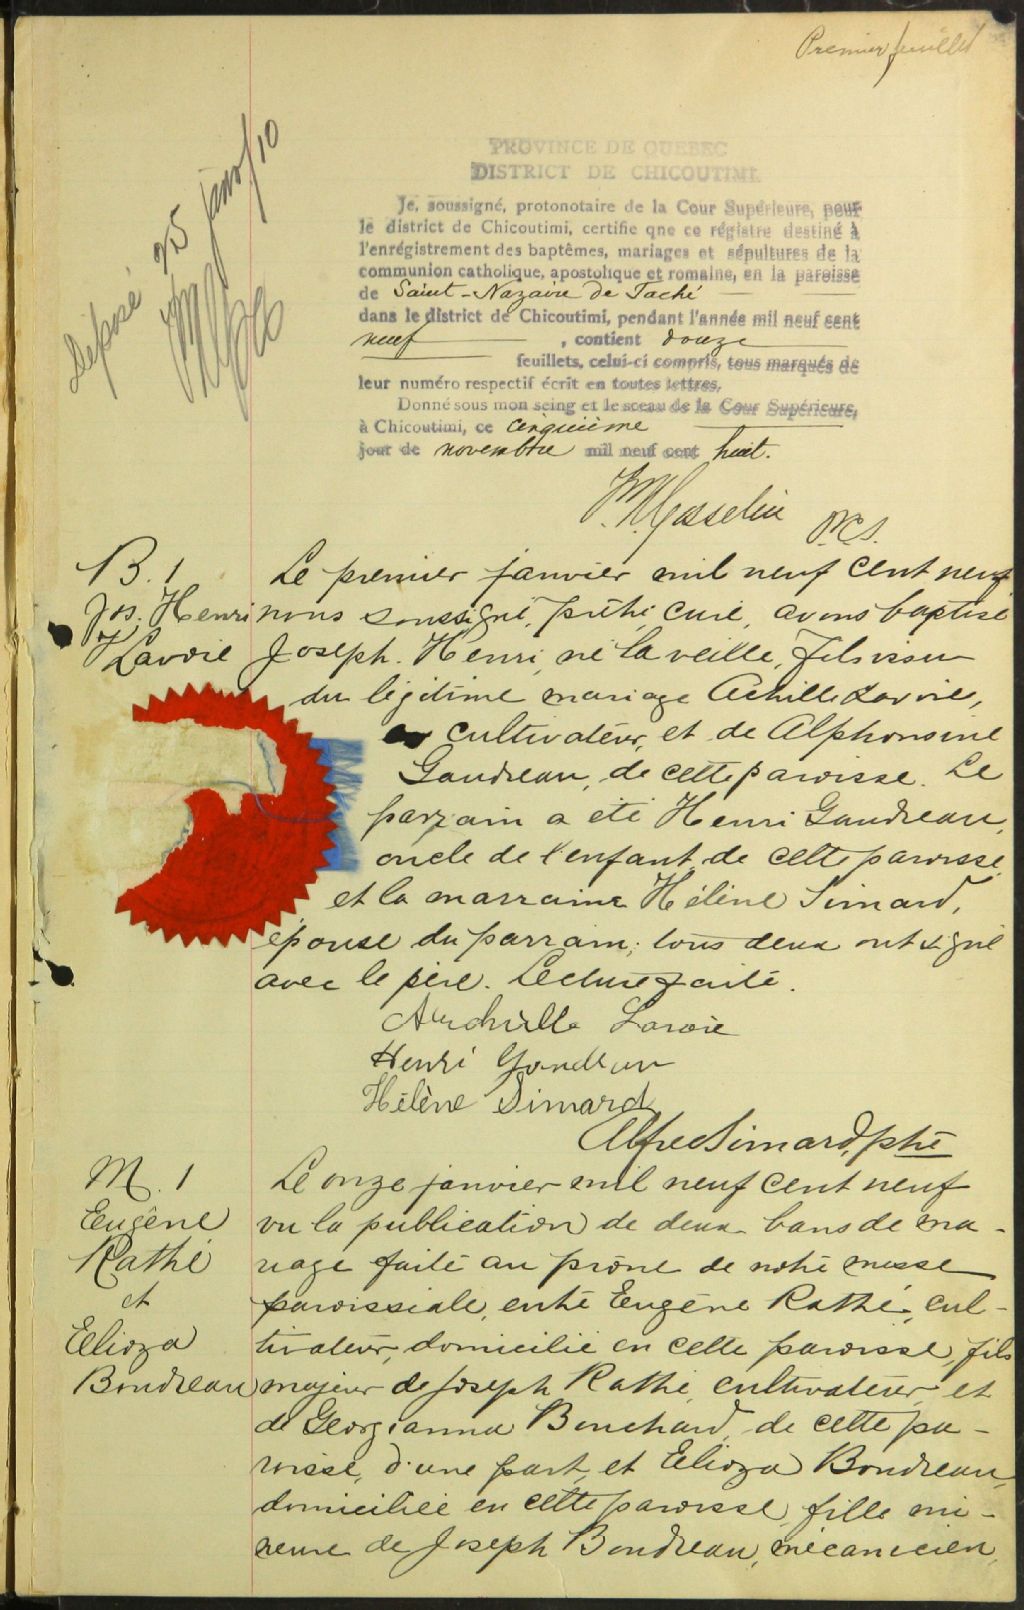 Premier feuillet
Déposé 25 janv/10
PROVINCE DE QUEBEC
DISTRICT DE CHICOUTIMI
Je, soussigné, protonotaire de la Cour Supérieure, pour
le district de Chicoutimi, certifie qne ce régistre destiné à
l'enrégistrement des baptêmes, mariages et sépultures de la
communion catholique, apostolique et romaine, en la paroisse
de Saint-Nazaire de Taché
dans le district de Chicoutimi, pendant l'année mil neuf cent
neuf , contient douze
feuillets, celui-ci compris, tous marqués de
leur numéro respectif écrit en toutes lettres.
Donné sous mon seing et le sceau de la Cour Supérieure,
à Chicoutimi, ce cinquième
jour de novembre mil neuf cent huit.
Gosselin P.C.S.
B. 1
Jos. Henri
Lavoie
Le premier janvier mil neuf cent neuf
nous soussigné, prêtre curé, avons baptisé
Joseph. Henri, né la veille, fils issu
du légitime mariage Achille Lavoie,
cultivateur, et de Alphonsine
Gaudreau, de cette paroisse. Le
parrain a été Henri Gaudreau,
oncle de l'enfant, de cette paroisse
et la marraine Hélène Simard,
épouse du parrain; tous deux ont signé
avec le père. Lecture faite.
Auchille Lavoie
Henri Gaudreau
Hélène Simard
Alfred Simard, ptre
M. 1
Eugène
Rathé
et
Elioza
Boudreau
Le onze janvier mil neuf cent neuf
vu la publication de deux bans de ma-
riage faite au prône de notre messe
paroissiale, entre Eugène Rathé, cul-
tivateur, domicilié en cette paroisse, fils
majeur de Joseph Rathé, cultivateur, et
de Georgianna Bouchard, de cette pa-
roisse, d'une part, et Elioza Boudreau,
domiciliée en cette paroisse, fille mi-
neure de Joseph Boudreau, mécanicien,